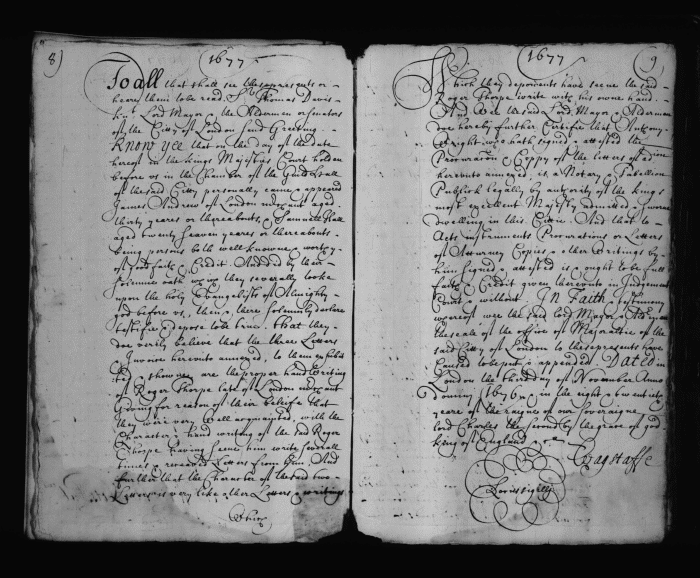 8)
1677
To all that shall see these presents or
heare them to be read. Sr Thomas Davis
knt Lord Mayor & the Aldermen or Senators
of the Citty of London send Greeting.
Know yee that on the day of the date
hereof in the Kings Majesties Court holden
before us in the Chamber of the Guildhall
of the said Citty personally came & appeared
James Andrew of London aged
thirty yeares or thereabouts, & Samuell Hall
aged twenty seaven yeares or thereabouts
being persons both well knowne & worthy
of good faith & Credit. And did by their
solemne oath wch they severally tooke
upon the holy Evangelists of Almighty
god before us, then & there solemnly declare
testifie & depose to be true. that they
doe verily believe that the three Letters
& Invoice hereunto annexed, to them exhibi
ted & showne are the proper hand Writing
of Roger Thorpe late of London
Giving for reason of their beliefe that
they were very well acquainted with the
Character & hand writing of the said Roger
Thorpe having seene him write severall
times & received Letters from him. And
further that the Character of the said two
Letters is very like other Letters & writing
1677
9
Which they deponents have seene the said
Roger Thorpe write with his owne hand.
And Wee the said Lord Mayor & Aldermen
doe hereby further Certifie that Antony
Wright who hath signed & attested the
Procuration & Coppy of the letters
hereunto annexed, is a Notary & Tabellion
Publick legally by authority of the Kings
most excellent Majesty admitted & sworne
dwelling in this Cittie. And that to
Acts instruments Procurations or Letters
of Attorney Copies & other Writings by
him signed & attested is & ought to be full
faith & Credit given thereunto in Judgement
Court & without. In Faith & testimony
whereof wee the said lord Mayor & Aldermen
the seale of the office of Majoraltie of the
said Citty of London to these presents have
Caused to be put & appended. Dated in
London the third day of November Anno
Domini 1676 & in the eight & twentieth
yeare of the raigne of our Soveraigne
lord Charles the second by the grace of god
king of England &c
Wagstaffe
Locus sigilli